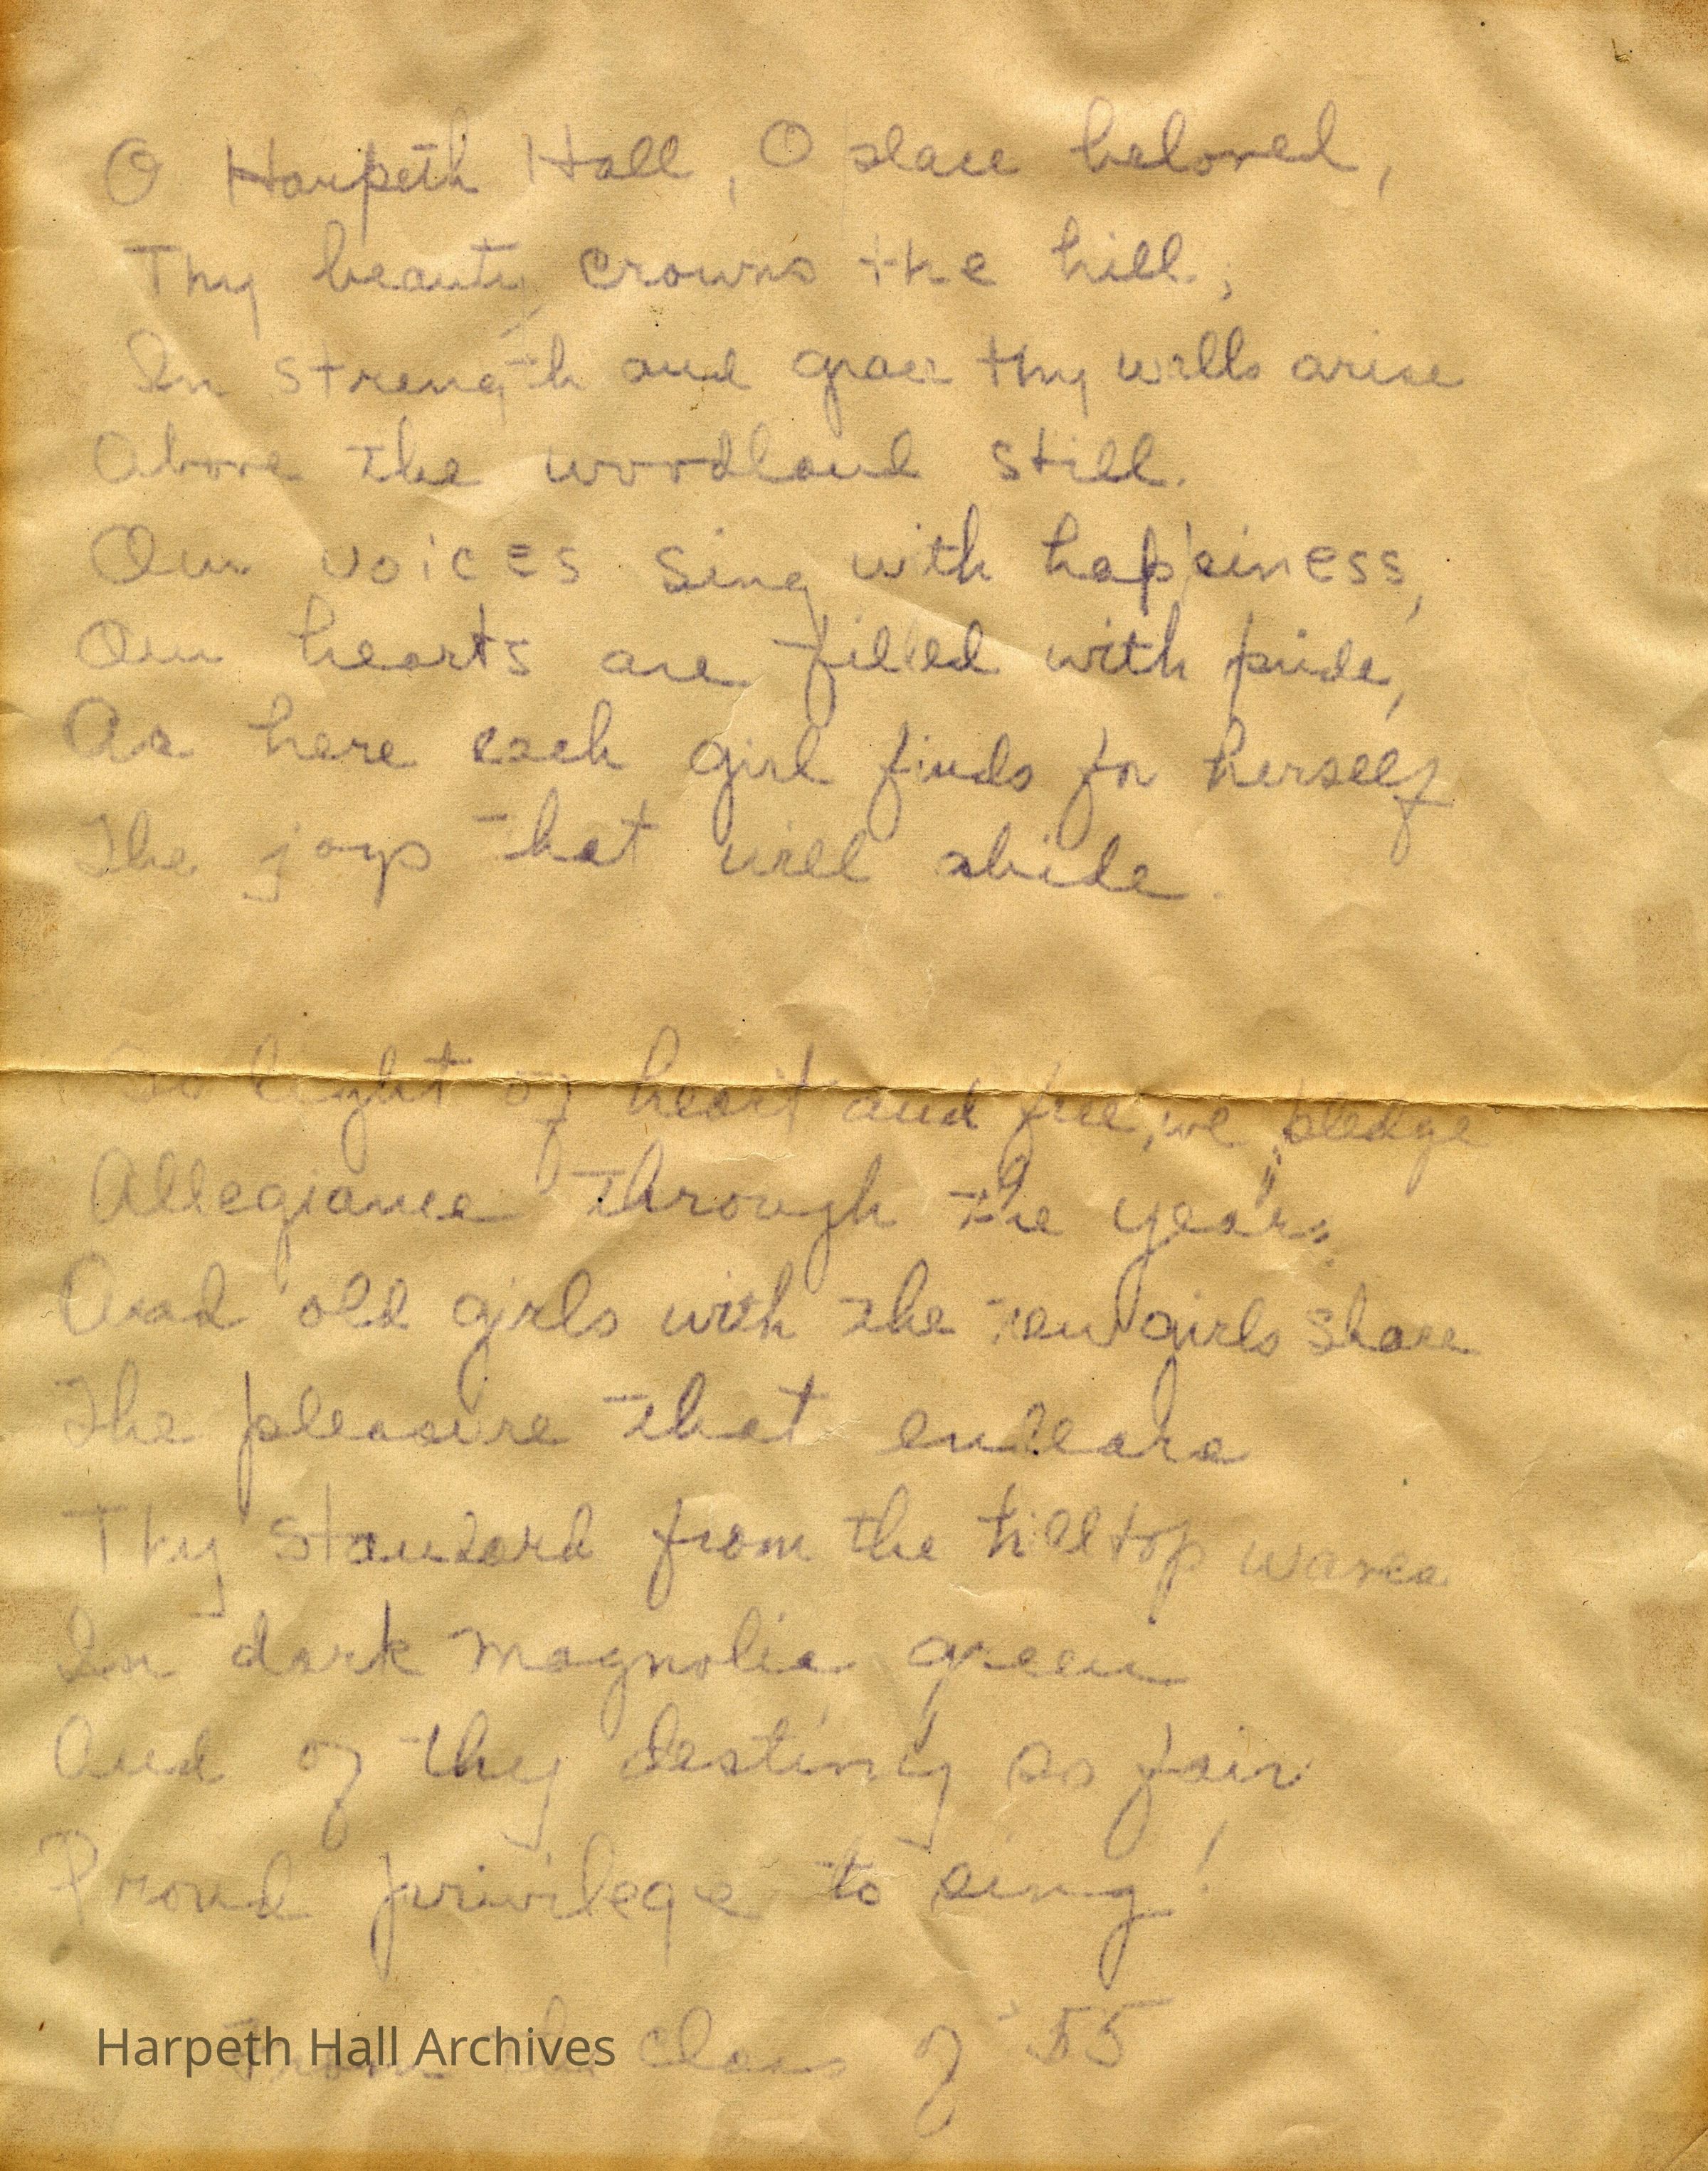 O Harpeth Hall, O place beloved,
Thy beauty crowns the hill;
In strength and grace thy walls arise
Above the woodland still.
Our voices sing with happiness,
Our hearts are filled with pride,
As here each girl finds for herself
The joys that will abide.
So light of heart and free, we pledge
Allegiance through the years
And old girls with the new girls share
The pleasure that endears
Thy standard from the hilltop waves
In dark magnolia green
And of thy destiny so fair
Proud privilege to sing!
From the Class of '55
Harpeth Hall Archives